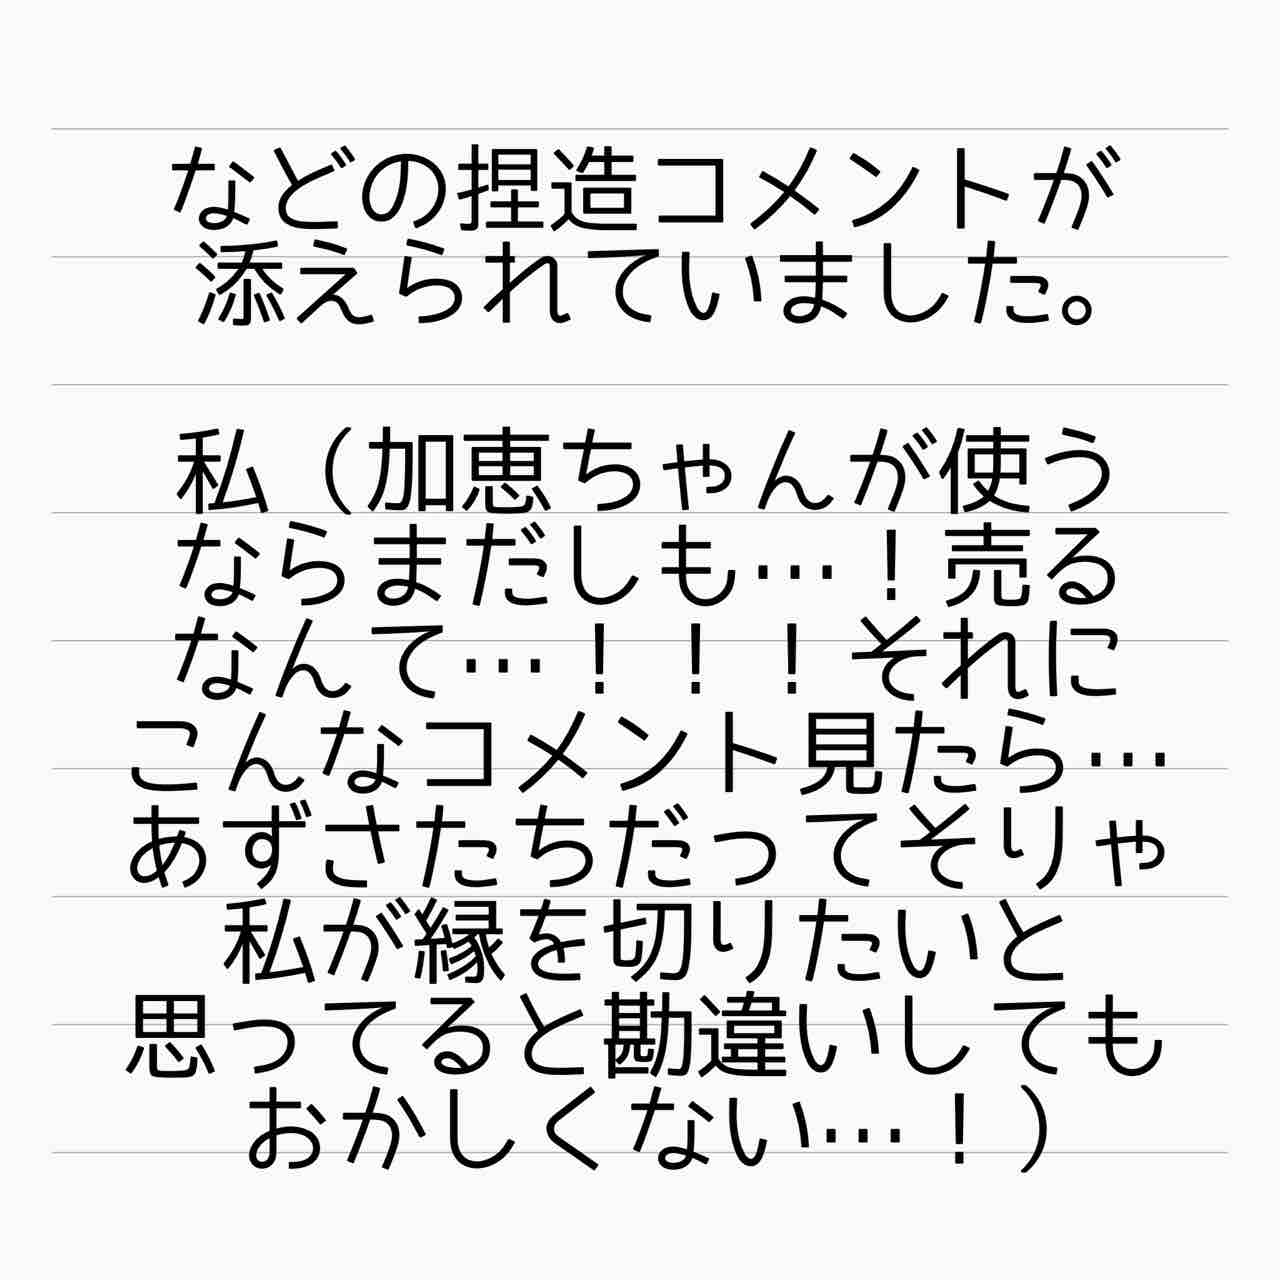 などの捏造コメントが
添えられていました。
私（加恵ちゃんが使う
ならまだしも…！売る
なんて…！！！それに
こんなコメント見たら…
あずさたちだってそりゃ
私が縁を切りたいと
思ってると勘違いしても
おかしくない…！）